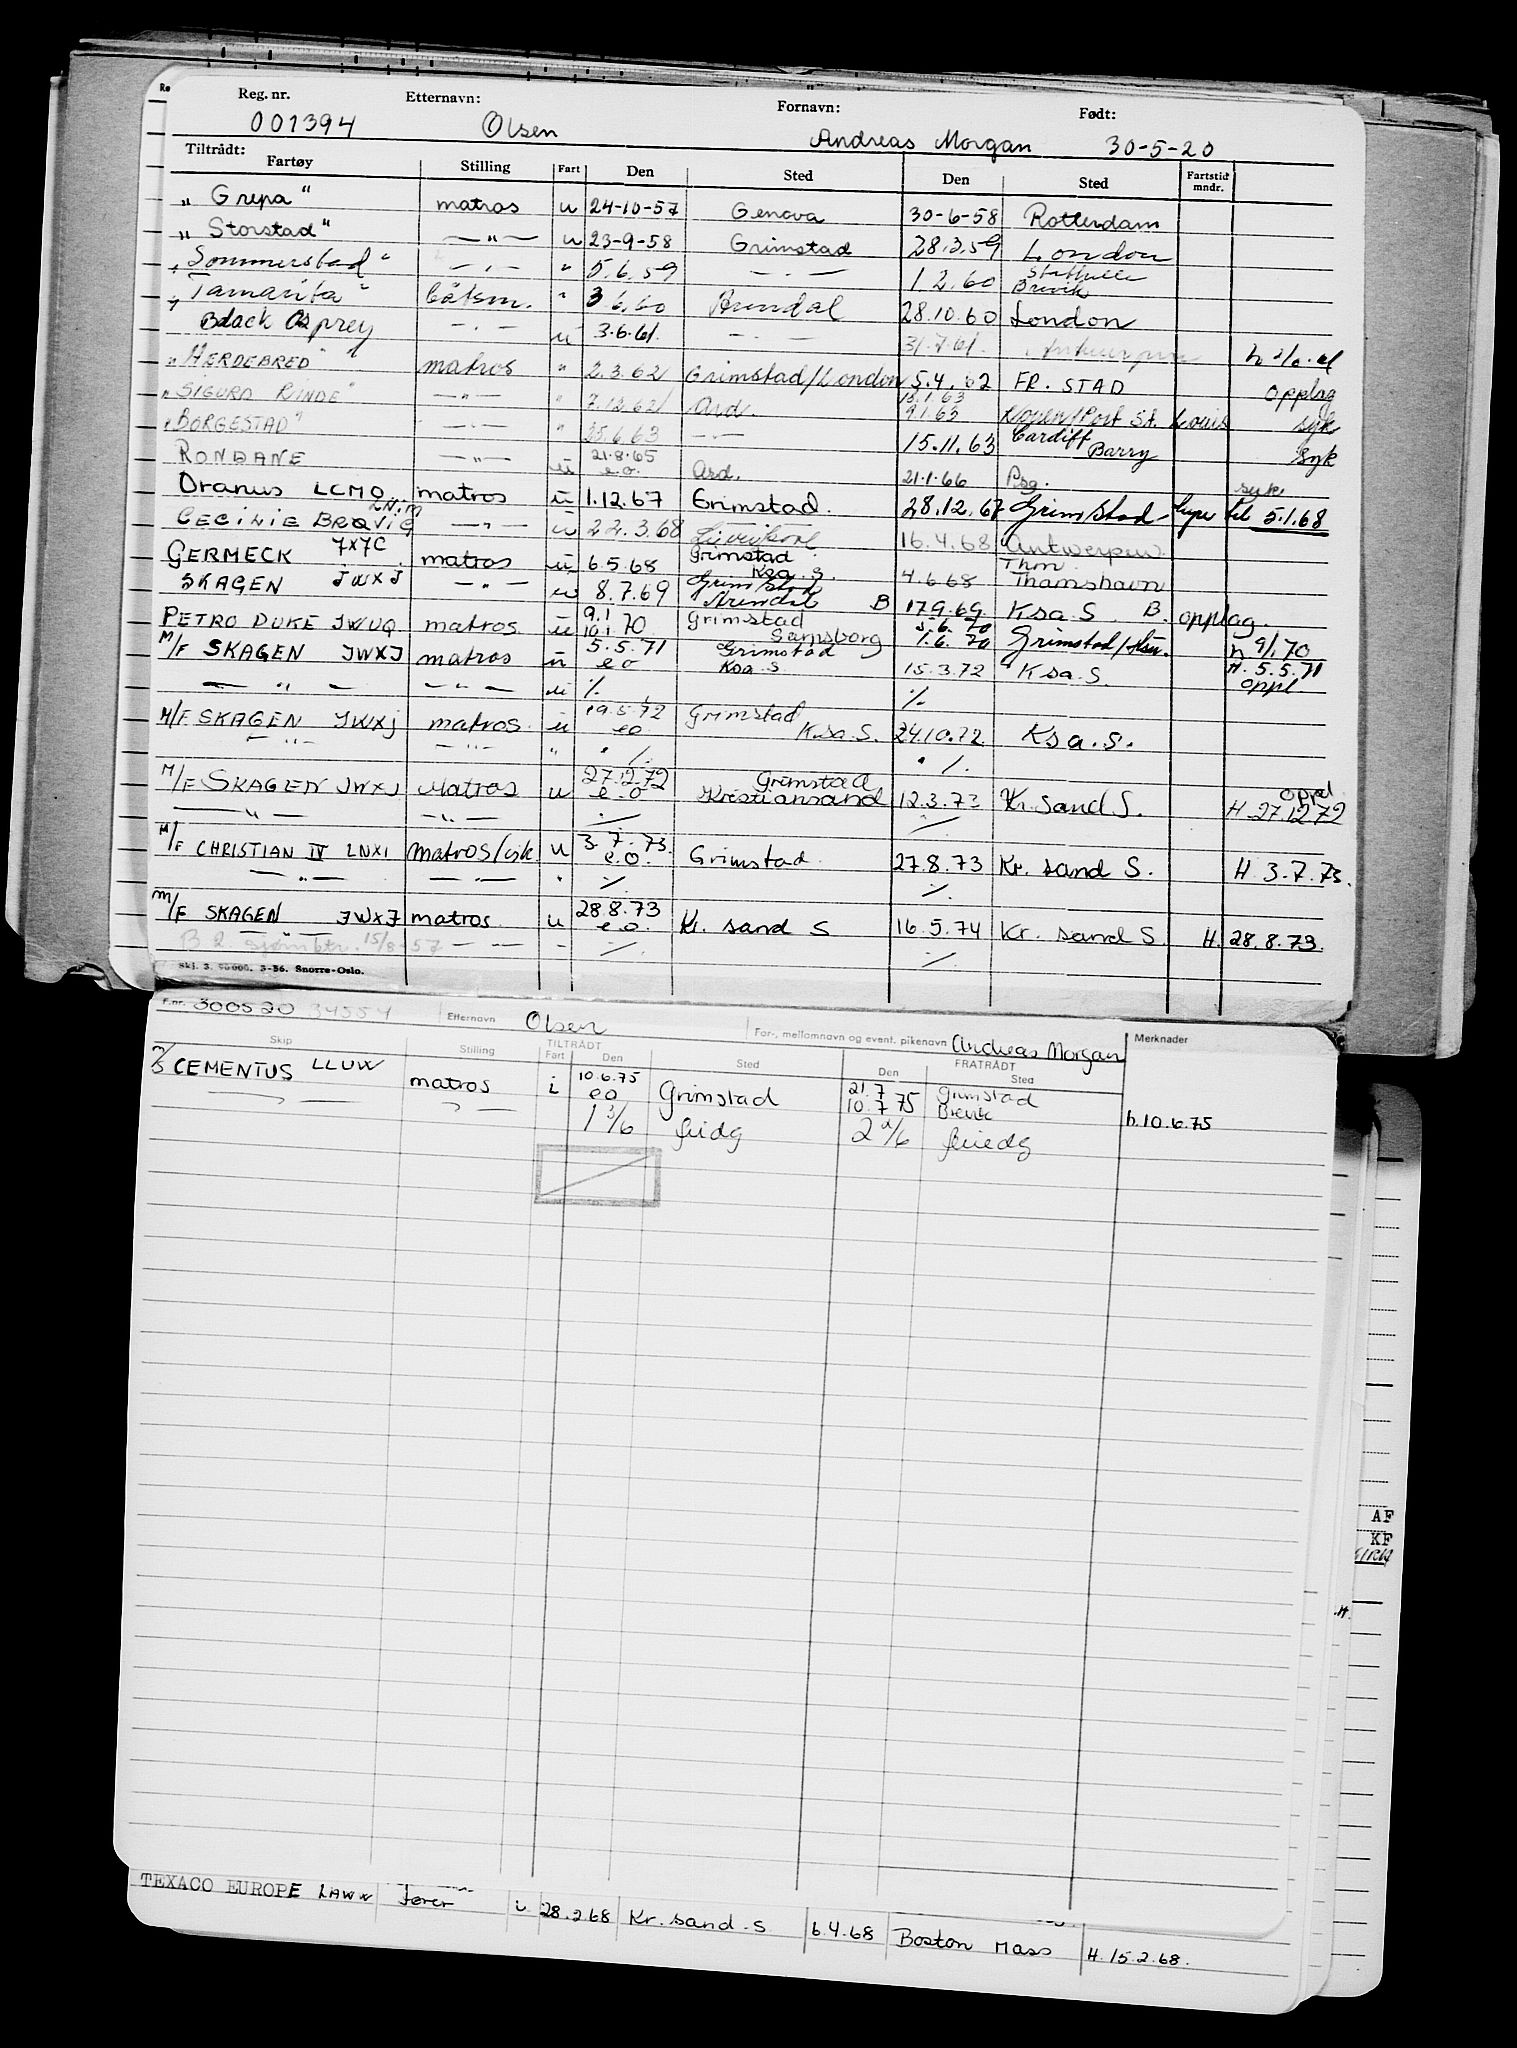 Reg. nr. Etternavn: Fornavn: Født:
001394 Olsen Andreas Morgan 30-5-20
Tiltrådt:
Fartøy Stilling Fart Den Sted Den Sted Fartstid mndr.
„ Grepa " matros u 24-10-57 Genova 30-6-58 Rotterdam
„ Storstad " — " — u 23-9-58 Grimstad 28.3.59 London
„ Sommerstad " — " — " 5.6.59 — " — 1 2.60 Brevik
„ Tamarita " båtsm. " 3.6.60 Arendal 28.10.60 London
Black Osprey — " — u 3.6.61. — — 31.7.61.
„ HERDEBRED " matros " 2.3.62 Grimstad/London 5.4.62 FR. STAD opplag
„ SIGURD RINDE " — " — " 7.12.62 Ard. 9.1.63 /Port St. Louis syk
„ BORGESTAD " — " — " 25.6.63 — " — 15.11.63 Cardiff Barry syk
RONDANE — " — u 21.8.65 e.o. Ard. 21.1.66 syk.
Dranus LCMO matros u 1.12.67 Grimstad. 28.12.67 Grimstad - til 5.1.68
CECILIE BRØVIG LNIM — " — u 22.3.68 16.4.68 Antwerpen
GERMECK JXJC matros u 6.5.68 Grimstad Ksa. S. 4.6.68 Thm Thamshavn
SKAGEN JWXJ — " — u 8.7.69 Grimstad Arendal B 17.9.69. Ksa. S. B. opplag.
PETRO DUKE JWUQ matros u 9.1 10.1 70 Grimstad Sarpsborg 5.6.70 1.6.70 Grimstad/ h 9/1.70
M/F SKAGEN JWXJ matros u 5.5.71 e o Grimstad Ksa. S. 15.3.72 Ksa. S. H. 5.5.71
— " — — " — u ./. ./. oppl.
M/F SKAGEN JWXJ matros u 19.5.72 eo Grimstad Ksa. S. 24.10.72 Ksa. S.
— " — — " — " ./. ./.
M/F SKAGEN JWXJ Matros u 27.12.72 e.o Grimstad Kristiansand 12.3.73 Kr. sand S. oppl H. 27.12.72
— " — — " — ./. ./.
M/F CHRISTIAN IV LNXI matros/ u 3.7.73. e.o. Grimstad. 27.8.73 Kr. sand S. H. 3.7.73.
— " — — " — " ./. ./.
M/F SKAGEN JWXJ matros u 28.8.73 e.o. Kr. sand S 16.5.74 Kr. sand S. H. 28.8.73.
B 2. 15/8-57 — — - ./. ./.
Skj. 3. 3-56. Snorre-Oslo.
F.nr. 300520 34554 Etternavn Olsen For-, mellomnavn og event. pikenavn Andreas Morgan Merknader
Skip Stilling TILTRÅDT Fart Den Sted FRATRÅDT Den Sted
CEMENTUS LLUW matros i 10.6.75 eo Grimstad 21.7 10.7 75 Grimstad Brevik h. 10.6.75
TEXACO EUROPE LAWW fører u 28.2 68 Kr. sand. S 6.4.68 Boston Mass H. 15.2.68.
AF
KF
.H.